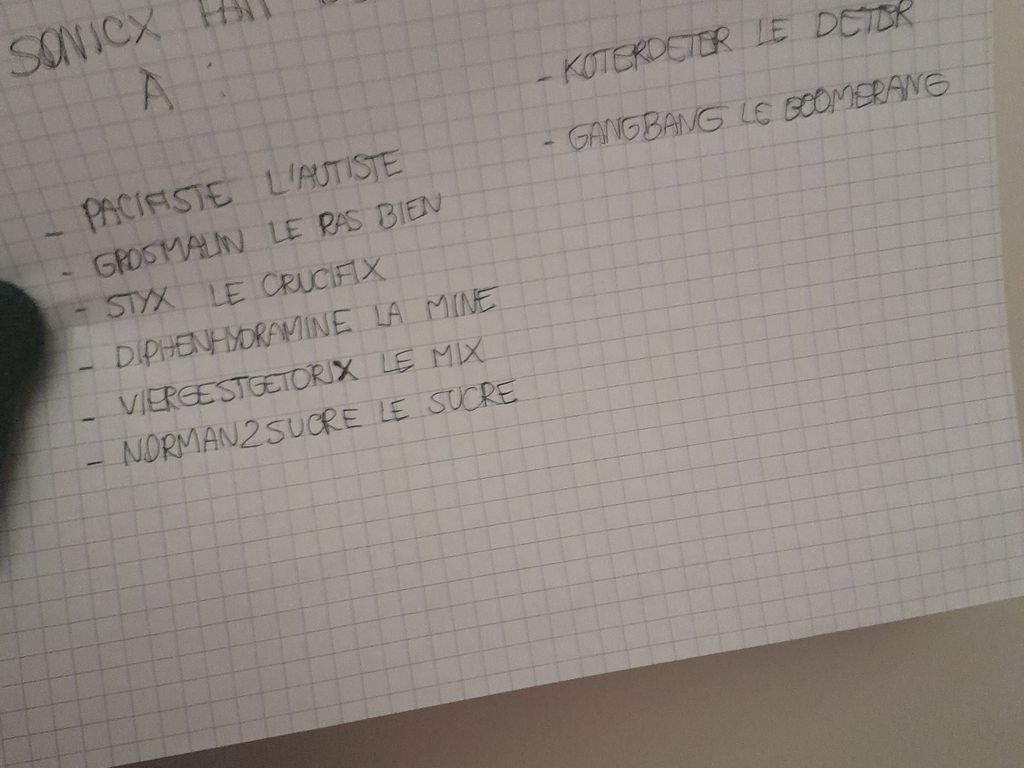 SONICX FAIT
A :
- PACIFISTE L'AUTISTE
- GROSMALIN LE PAS BIEN
- STYX LE CRUCIFIX
- DIPHENHYDRAMINE LA MINE
- VIERGESTGETORIX LE MIX
- NORMAN2SUCRE LE SUCRE
- KOTERDETER LE DETER
- GANGBANG LE BOOMERANG